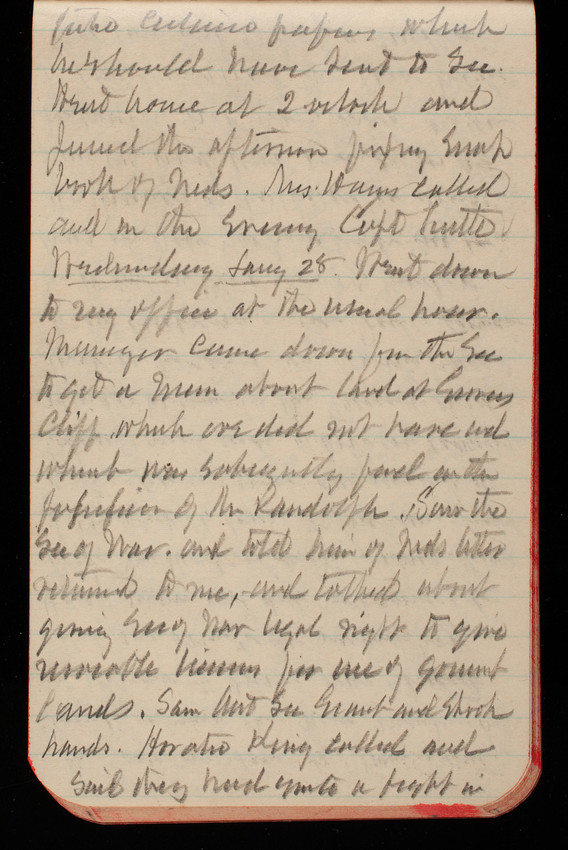 papers which
he should have sent to Sec.
Went home at 2 oclock and
the afternoon fixing Scrap
book of Neds. Mrs. Hayes called
and in the Evening Capt
Wednesday Jany 28. Went down
to my office at the usual hour.
came down from the Sec
to get a Mem about land at
Cliff which we did not have and
which was subsequently found in the
of Mr Randolph. Saw the
Sec of War. and told him of Neds letter
returned to me, and talked about
giving Sec of War legal right to give
revocable license for use of
lands. Saw Asst Sec Grant and Shook
hands. Horatio King called and
said they had quite a fight in